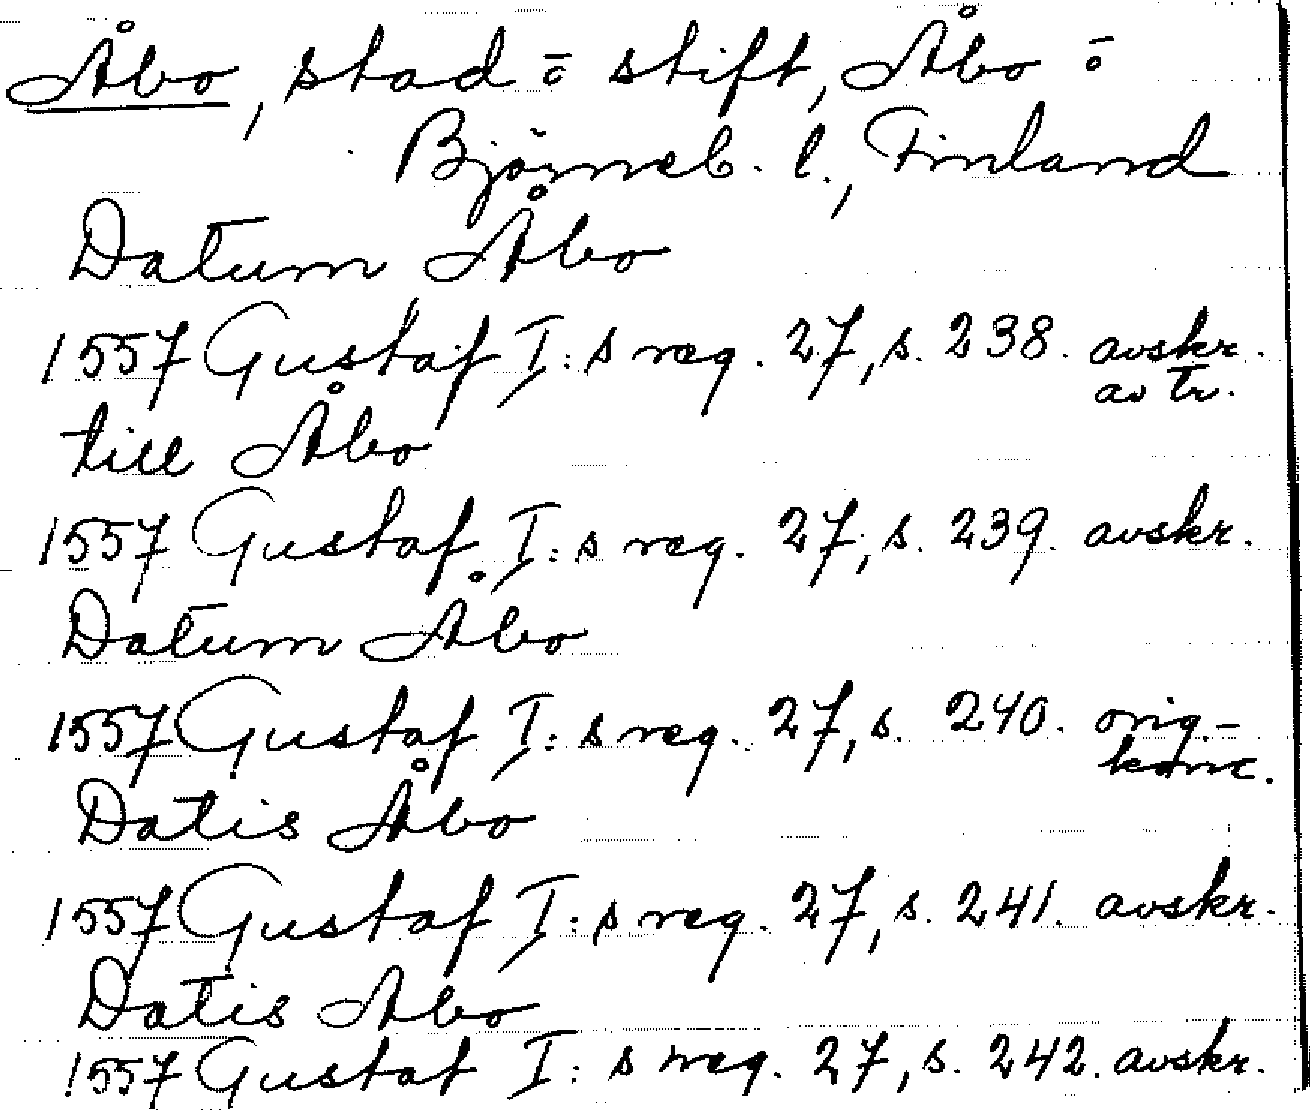 Åbo, stad o stift, Åbo o
Björneb. l., Finland
Datum Åbo
1557 Gustaf I:s reg. 27, s. 238. avskr.
av tr.
till Åbo
1557 Gustaf I:s reg. 27, s. 239. avskr.
Datum Åbo
1557 Gustaf I:s reg. 27, s. 240. orig.-
konc.
Datis Åbo
1557 Gustaf I:s reg. 27, s. 241. avskr.
Datis Åbo
1557 Gustaf I:s reg. 27, s. 242. avskr.